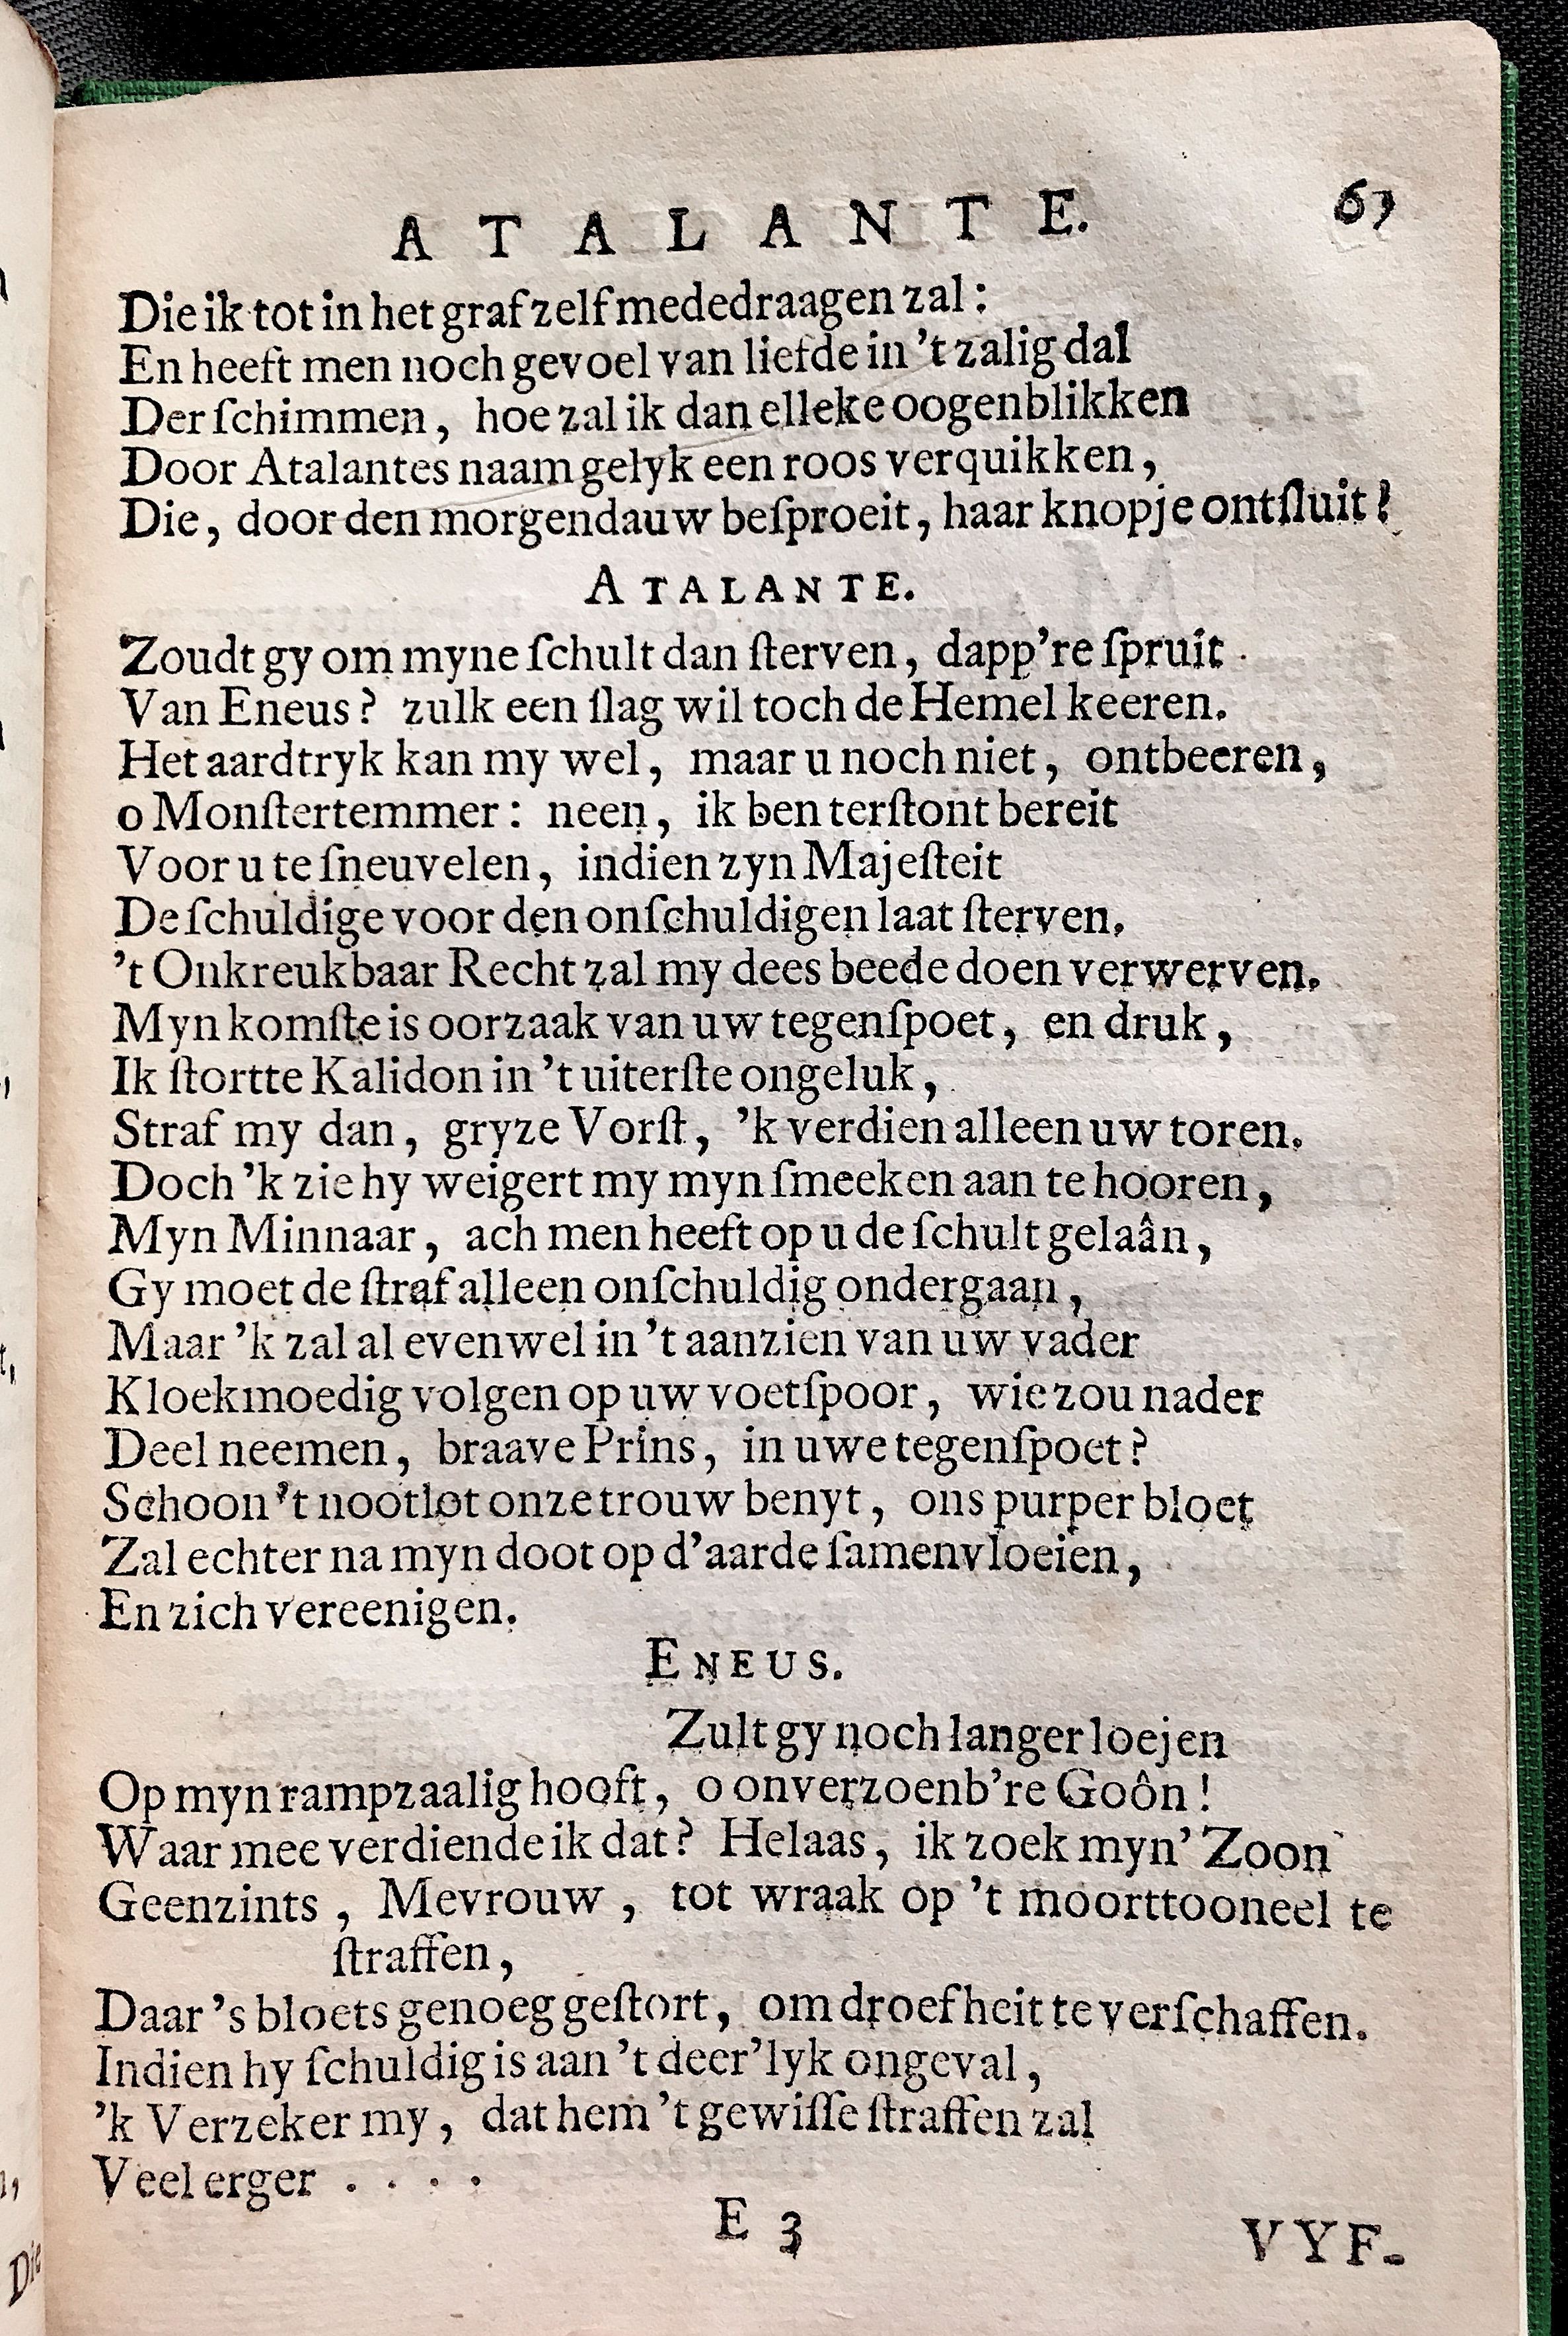 ATALANTE. 69
Die ik tot in het graf zelf mededraagen zal:
En heeft men noch gevoel van liefde in 't zalig dal
Der ſchimmen, hoe zal ik dan elleke oogenblikken
Door Atalantes naam gelyk een roos verquikken,
Die, door den morgendauw beſproeit, haar knopje ontſluit!
ATALANTE.
Zoudt gy om myne ſchult dan ſterven, dapp're ſpruit
Van Eneus? zulk een ſlag wil toch de Hemel keeren.
Het aardtryk kan my wel, maar u noch niet, ontbeeren,
o Monſtertemmer: neen, ik ben terſtont bereit
Voor u te ſneuvelen, indien zyn Majeſteit
De ſchuldige voor den onſchuldigen laat ſterven.
't Onkreukbaar Recht zal my dees beede doen verwerven.
Myn komſte is oorzaak van uw tegenſpoet, en druk,
Ik ſtortte Kalidon in 't uiterſte ongeluk,
Straf my dan, gryze Vorſt, 'k verdien alleen uw toren.
Doch 'k zie hy weigert my myn ſmeeken aan te hooren,
Myn Minnaar, ach men heeft op u de ſchult gelaân,
Gy moet de ſtraf alleen onſchuldig ondergaan,
Maar 'k zal al evenwel in 't aanzien van uw vader
Kloekmoedig volgen op uw voetſpoor, wie zou nader
Deel neemen, braave Prins, in uwe tegenſpoet?
Schoon 't nootlot onze trouw benyt, ons purper bloet
Zal echter na myn doot op d'aarde ſamenvloeien,
En zich vereenigen.
ENEUS.
Zult gy noch langer loejen
Op myn rampzaalig hooft, o onverzoenb're Goôn!
Waar mee verdiende ik dat? Helaas, ik zoek myn' Zoon
Geenzints, Mevrouw, tot wraak op 't moorttooneel te
ſtraffen,
Daar 's bloets genoeg geſtort, om droefheit te verſchaffen.
Indien hy ſchuldig is aan 't deer'lyk ongeval,
'k Verzeker my, dat hem 't gewiſſe ſtraffen zal
Veel erger . . . .
E 3 VYF-